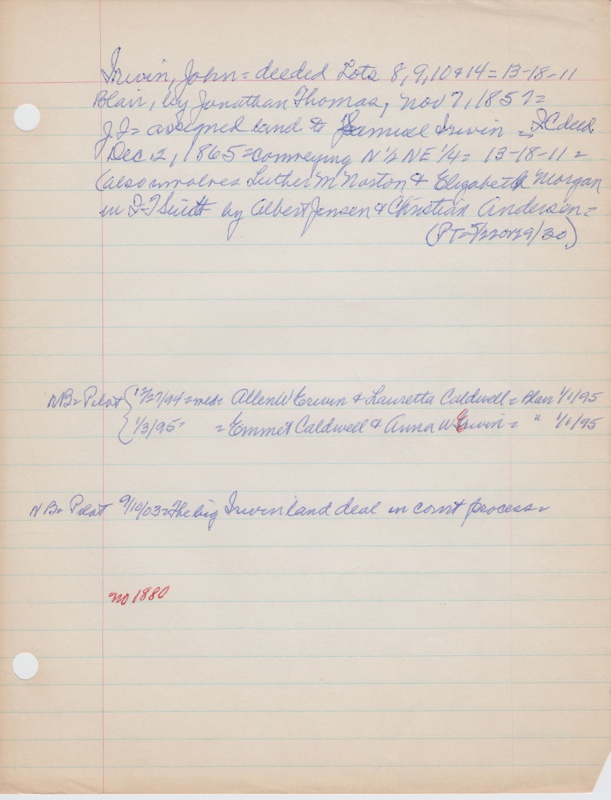 Irwin, John = deeded Lots 8, 9, 10 & 14 = 13-18-11
Blair, by Jonathan Thomas, Nov 7, 1857 =
J I = assigned land to Samuel Irwin = deed
Dec. 2, 1865 = conveying N 1/2 NE 1/4 = 13-18-11 =
(also involves Luther M Norton & Elizabeth Morgan
in by Albert Jensen & Christian Anderson =
(PT=
NB = Pilot { 12/27/94 = med = Allen W Erwin & Lauretta Caldwell = Blair 1/1/95
1/3/95 = = Emmet Caldwell & Anna W Erwin = " 1/11/95
NB = Pilot 9/10/03 = The big Irwin land deal in court process =
no 1880